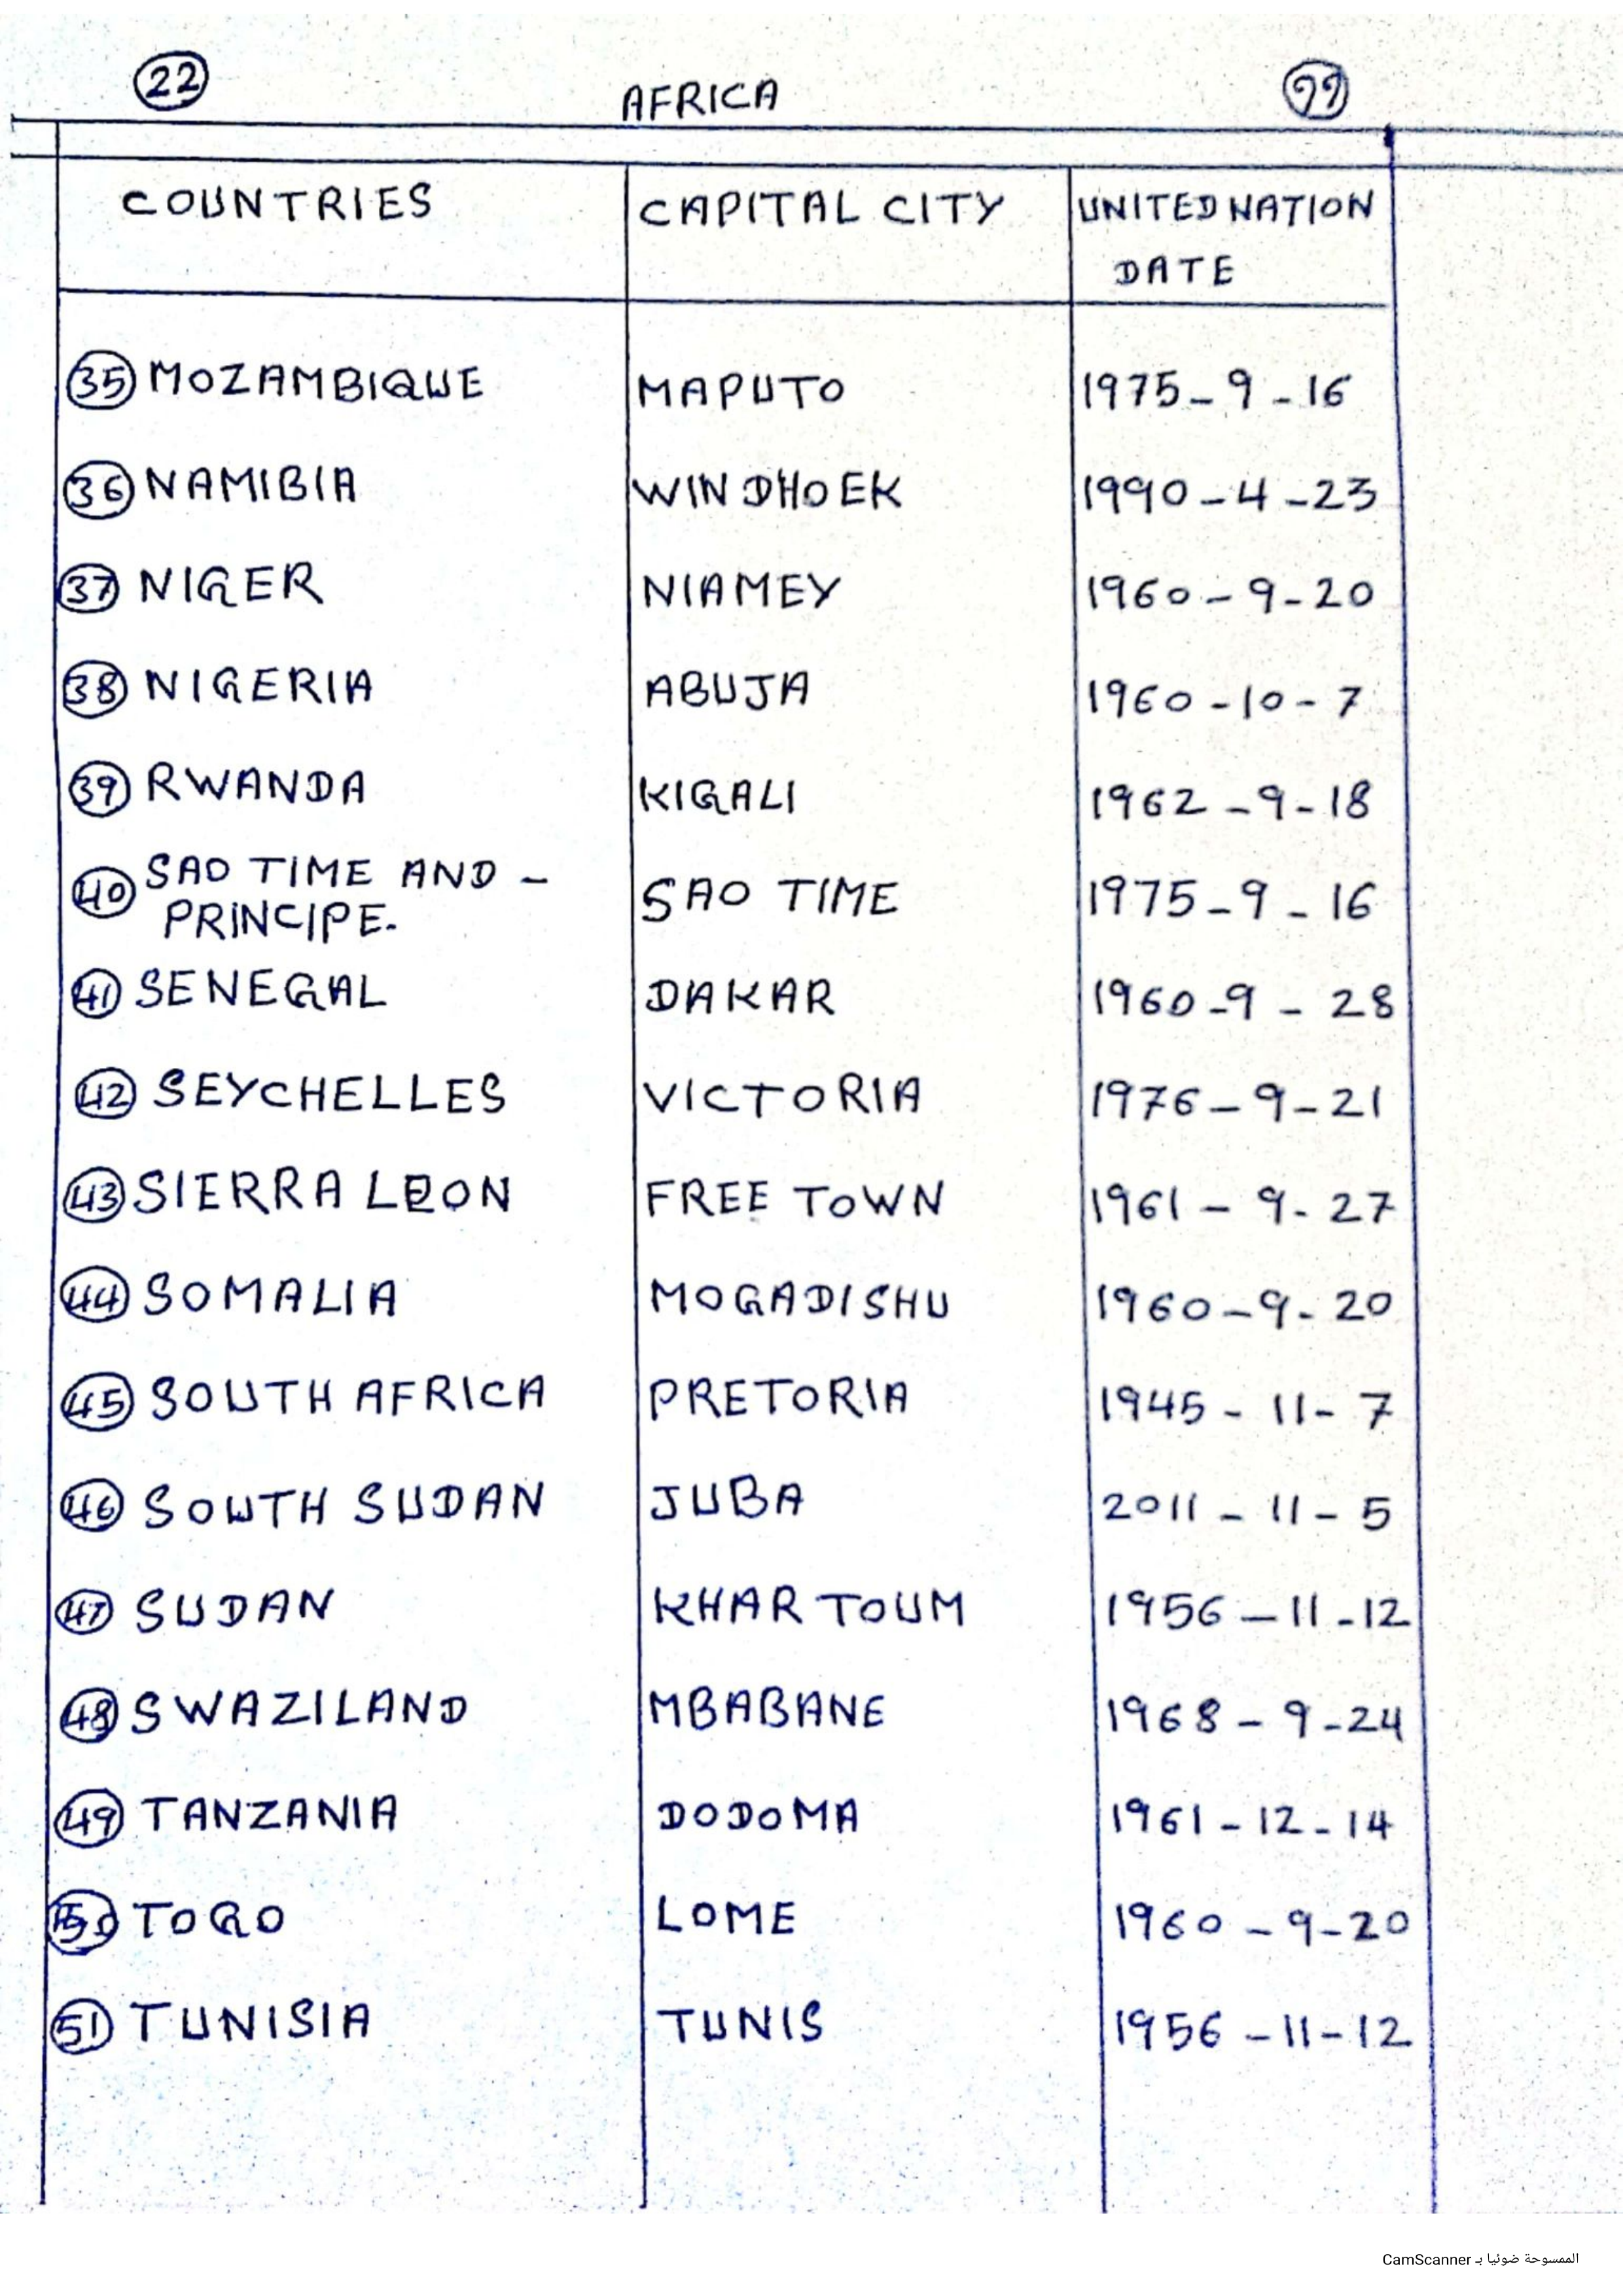 22 AFRICA 22
COUNTRIES CAPITAL CITY UNITED NATION
DATE
35 MOZAMBIQUE MAPUTO 1975-9-16
36 NAMIBIA WINDHOEK 1990-4-23
37 NIGER NIAMEY 1960-9-20
38 NIGERIA ABUJA 1960-10-7
39 RWANDA KIGALI 1962-9-18
40 SAO TIME AND -
PRINCIPE. SAO TIME 1975-9-16
41 SENEGAL DAKAR 1960-9-28
42 SEYCHELLES VICTORIA 1976-9-21
43 SIERRA LEON FREE TOWN 1961-9-27
44 SOMALIA MOGADISHU 1960-9-20
45 SOUTH AFRICA PRETORIA 1945-11-7
46 SOUTH SUDAN JUBA 2011-11-5
47 SUDAN KHARTOUM 1956-11-12
48 SWAZILAND MBABANE 1968-9-24
49 TANZANIA DODOMA 1961-12-14
50 TOGO LOME 1960-9-20
51 TUNISIA TUNIS 1956-11-12
الممسوحة ضوئيا بـ CamScanner